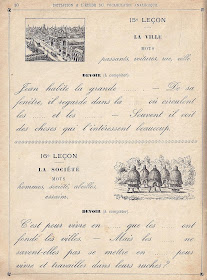 INITIATION A L'ÉTUDE DU VOCABULAIRE
15e LEÇON
LA VILLE
MOTS
passants, voitures, rue, ville.
DEVOIR (à compléter)
Jean habite la grande ..... — De sa
fenêtre, il regarde dans la ... où circulent
les ... et les ... — Souvent il voit
des choses qui l'intéressent beaucoup.
16e LEÇON
LA SOCIÉTÉ
MOTS
hommes, société, abeilles,
essaim.
DEVOIR (à compléter)
C'est pour vivre en ..., que les ... ont
fondé les villes. — Mais les ... ne
savent-elles pas se mettre en ... pour
vivre et travailler dans leurs ruches?